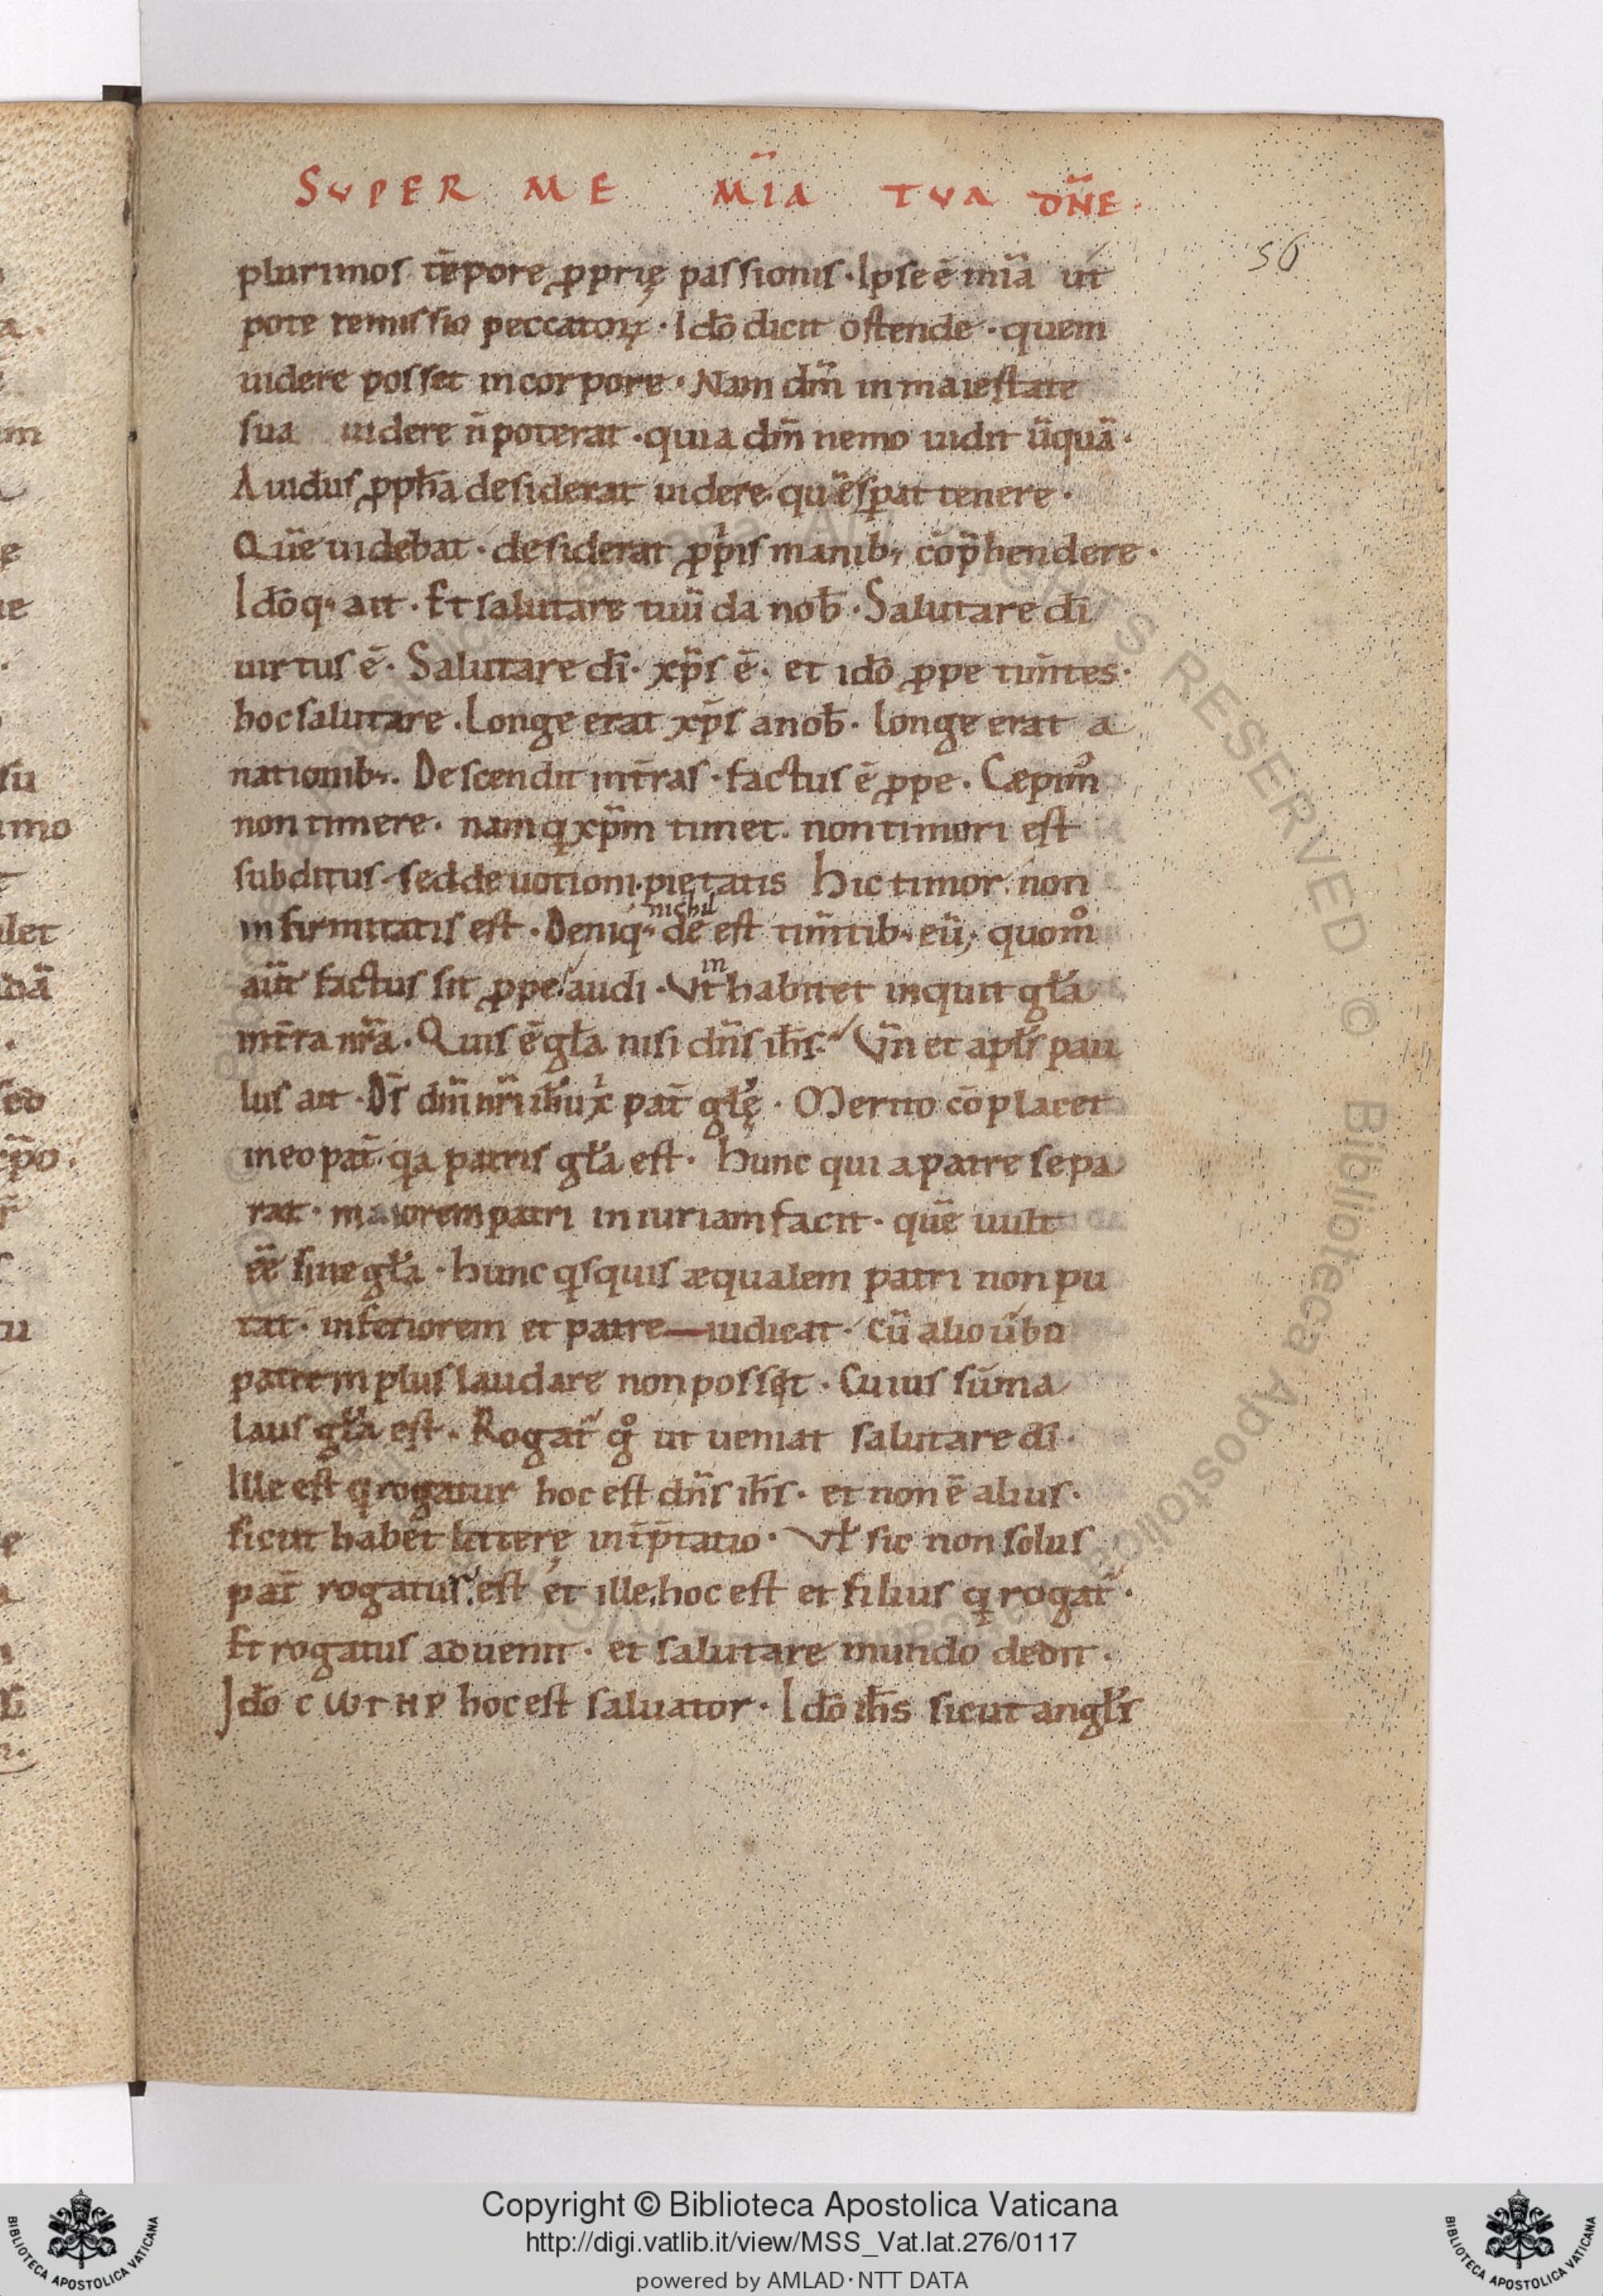 SVPER ME M̅IA TVA DN̅E.
56
plurimos te̅pore ꝓprię passionis · Ipse e̅ mi̅a ut
pote remissio peccatoꝝ · Ido̅ dicit ostende · quem
uidere posset in corpore · Nam dm̅ in maiestate
sua uidere n̅ poterat · quia dm̅ nemo uidit u̅qua̅ ·
Auidus ꝓph̅a desiderat uidere · que̅ sꝑat tenere ·
Que̅ uidebat · desiderat ꝓpis manib; co̅p̅hendere ·
Ido̅q; ait · Et salutare tuu̅ da nob̅ · Salutare di̅
uirtus e̅ · Salutare di̅ · xp̅s e̅ · et ido̅ ꝓpe tim̅tes ·
hoc salutare . Longe erat xp̅s a nob̅ · longe erat a
nationib; . Descendit in t̅ras · factus e̅ ꝓpe . Cæpim᾽
non timere · nam q xp̅m timet · non timori est
subditus · sed deuotioni · pietatis hic timor non
infirmitatis est · Deniq; nichil de est tim̅tib; eu̅; quomo
aut̅ factus sit ꝓpe audi · Vt inhabitet inquit gl̅a
in t̅ra nr̅a · Quis e̅ gl̅a nisi dn̅s ih̅s · Vn̅ et apl̅s pau
lus ait · Ds̅ dn̅i nr̅i ih̅u x̅ pat̅ gl̅ę · Merito co̅placet
in eo pat̅ · qa patris gl̅a est · hunc qui a patre sepa
rat · maiorem patri iniuriam facit · que̅ uult
ee̅ sine gl̅a · hunc qsquis æqualem patri non pu
tat · inferiorem et patre — iudicat · cu̅ alio u̅bo
patrem plus laudare non posset · Cuius su̅ma
laus gl̅a est . Rogat̅ g° ut ueniat salutare di̅ ·
Ille est q rogatur hoc est dn̅s ih̅s · et non e̅ alius ·
sicut habet litterę int̅p̅tatio · Vl̅ sic non solus
pat̅ rogatus est et ille, hoc est et filius q rogat̅ ·
Et rogatus aduenit · et salutare mundo dedit ·
Ido̅ CWTHP hoc est saluator · Ido̅ ih̅s sicut angl̅s
Copyright © Biblioteca Apostolica Vaticana
http://digi.vatlib.it/view/MSS_Vat.lat.276/0117
powered by AMLAD·NTT DATA
BIBLIOTECA APOSTOLICA VATICANA
BIBLIOTECA APOSTOLICA VATICANA